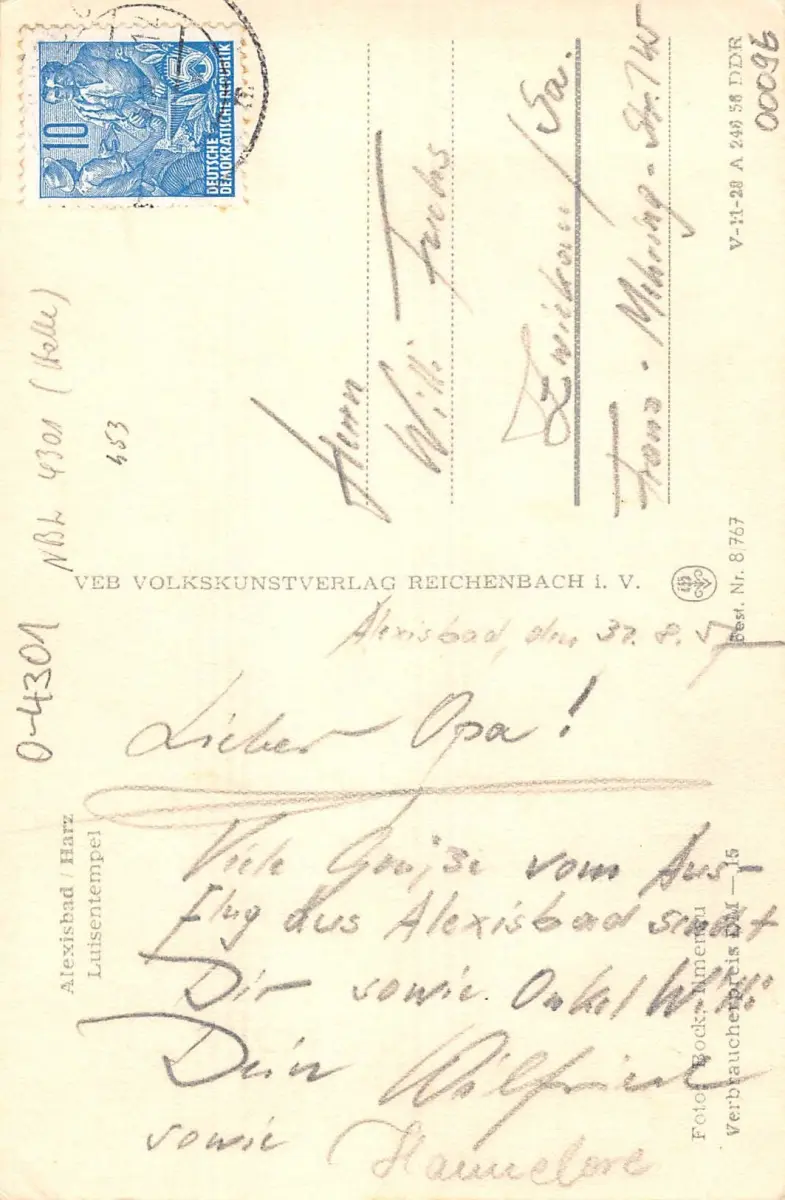 10
DEUTSCHE
DEMOKRATISCHE REPUBLIK
Herrn
Willi Fuchs
Zwickau/Sa.
Franz-Mehring-Str. 7W
V-11-28 A 246 56 DDR
00096
NBL 4301 (Halle)
453
VEB VOLKSKUNSTVERLAG REICHENBACH i. V.
Best. Nr. 8/767
0-4301
Alexisbad / Harz
Luisentempel
Alexisbad, den 31. 8. 57
Lieber Opa!
Viele Grüße vom Aus-
flug aus Alexisbad sendet
Dir sowie Onkel Willi
Dein Wilfried
sowie Hannelore
Foto: Bock, Ilmenau
Verbraucherpreis DM —,15